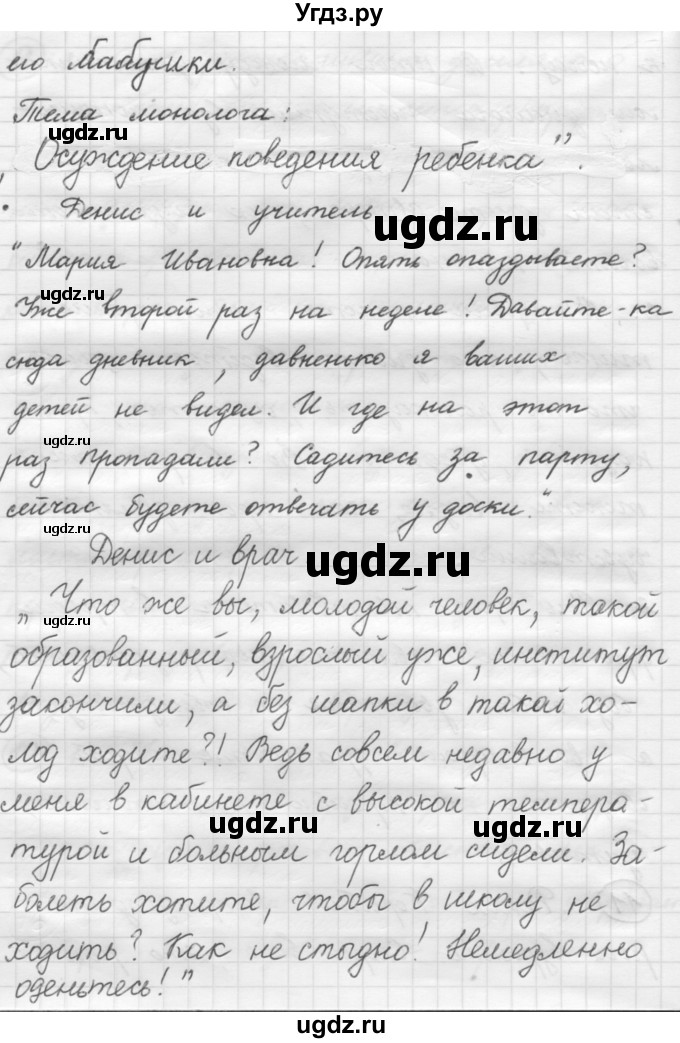 Угдз.ру
его бабушки.
Тема монолога:
ugdz.ru
„Осуждение поведения ребенка”.
• Денис и учитель
ugdz.ru
“Мария Ивановна! Опять опаздываете?
ugdz.ru
Уже второй раз на неделе! Давайте-ка
сюда дневник, давненько я ваших
детей не видел. И где на этот
ugdz.ru
раз пропадали? Садитесь за парту,
сейчас будете отвечать у доски.“
ugdz.ru
Денис и врач
ugdz.ru
„Что же вы, молодой человек, такой
ugdz.ru
образованный, взрослый уже, институт
закончили, а без шапки в такой хо-
лод ходите?! Ведь совсем недавно у
меня в кабинете с высокой темпера-
ugdz.ru ugdz.ru
турой и больным горлом сидели. За-
болеть хотите, чтобы в школу не
ходить? Как не стыдно! Немедленно
оденьтесь!”
ugdz.ru